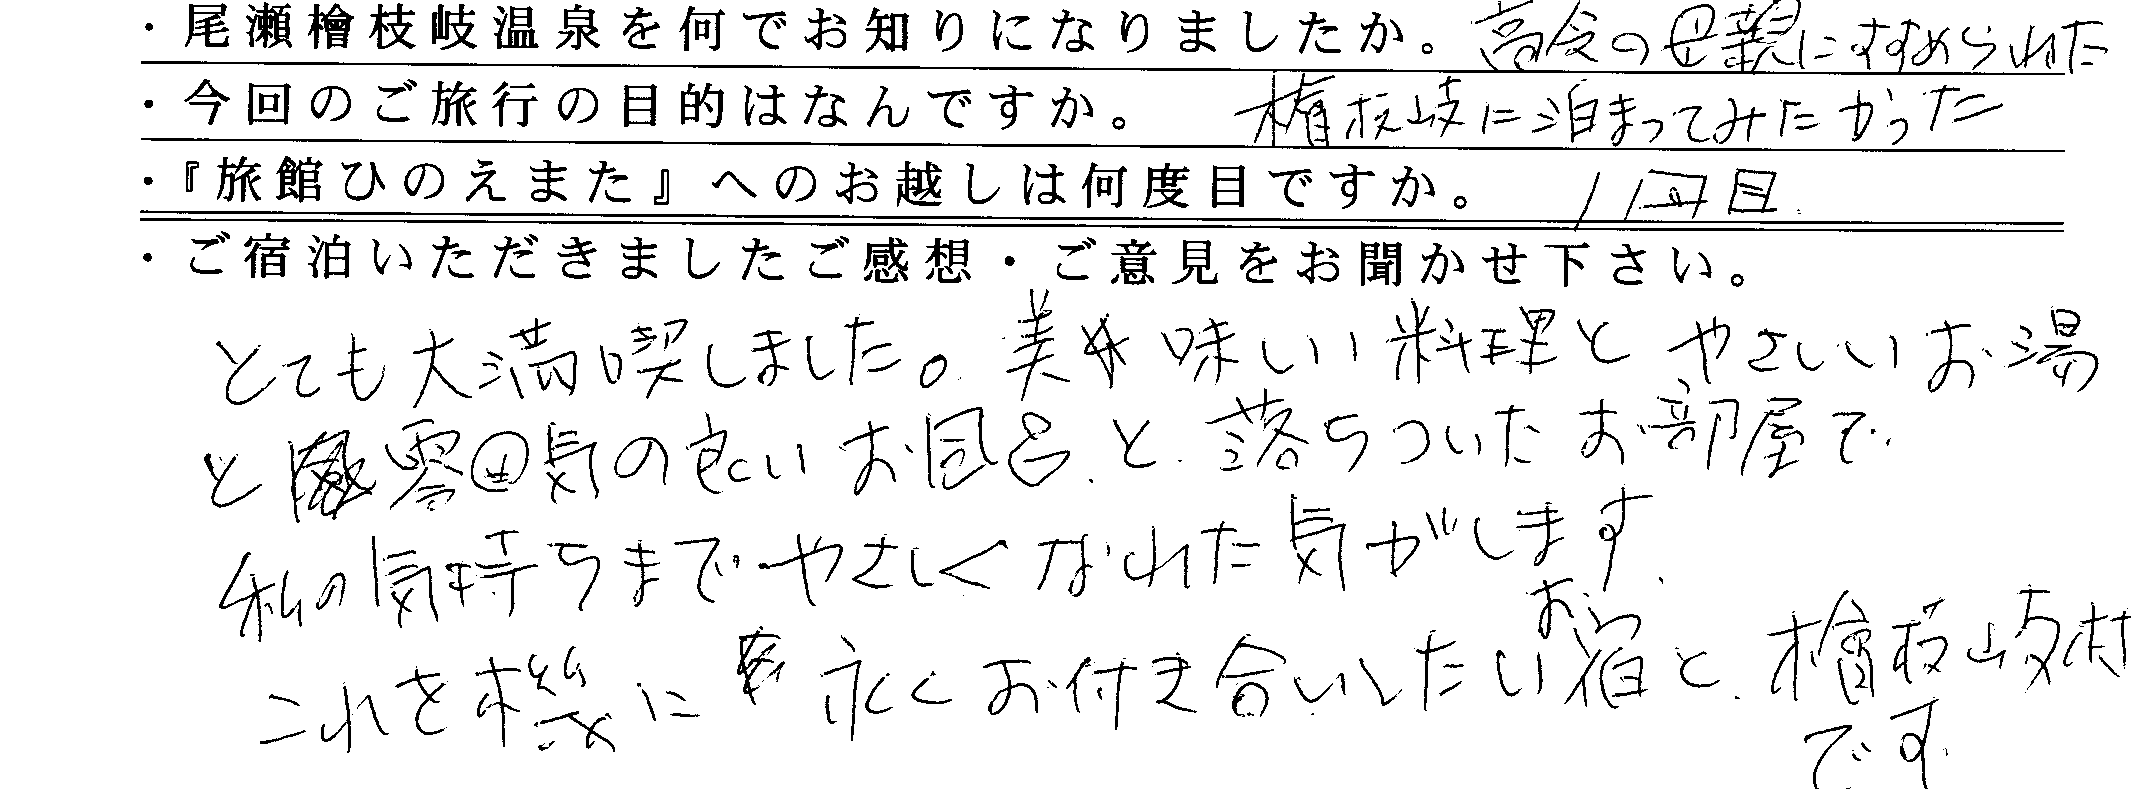 ・尾瀬檜枝岐温泉を何でお知りになりましたか。高令の母親にすすめられた
・今回のご旅行の目的はなんですか。 檜枝岐に泊まってみたかった
・『旅館ひのえまた』へのお越しは何度目ですか。 1回目
・ご宿泊いただきましたご感想・ご意見をお聞かせ下さい。
とても大満喫しました。美味しい料理とやさしいお湯
と雰囲気の良いお風呂と落ちついたお部屋で
私の気持ちまでやさしくなれた気がします
これを機に永くお付き合いしたいお宿と檜枝岐村
です